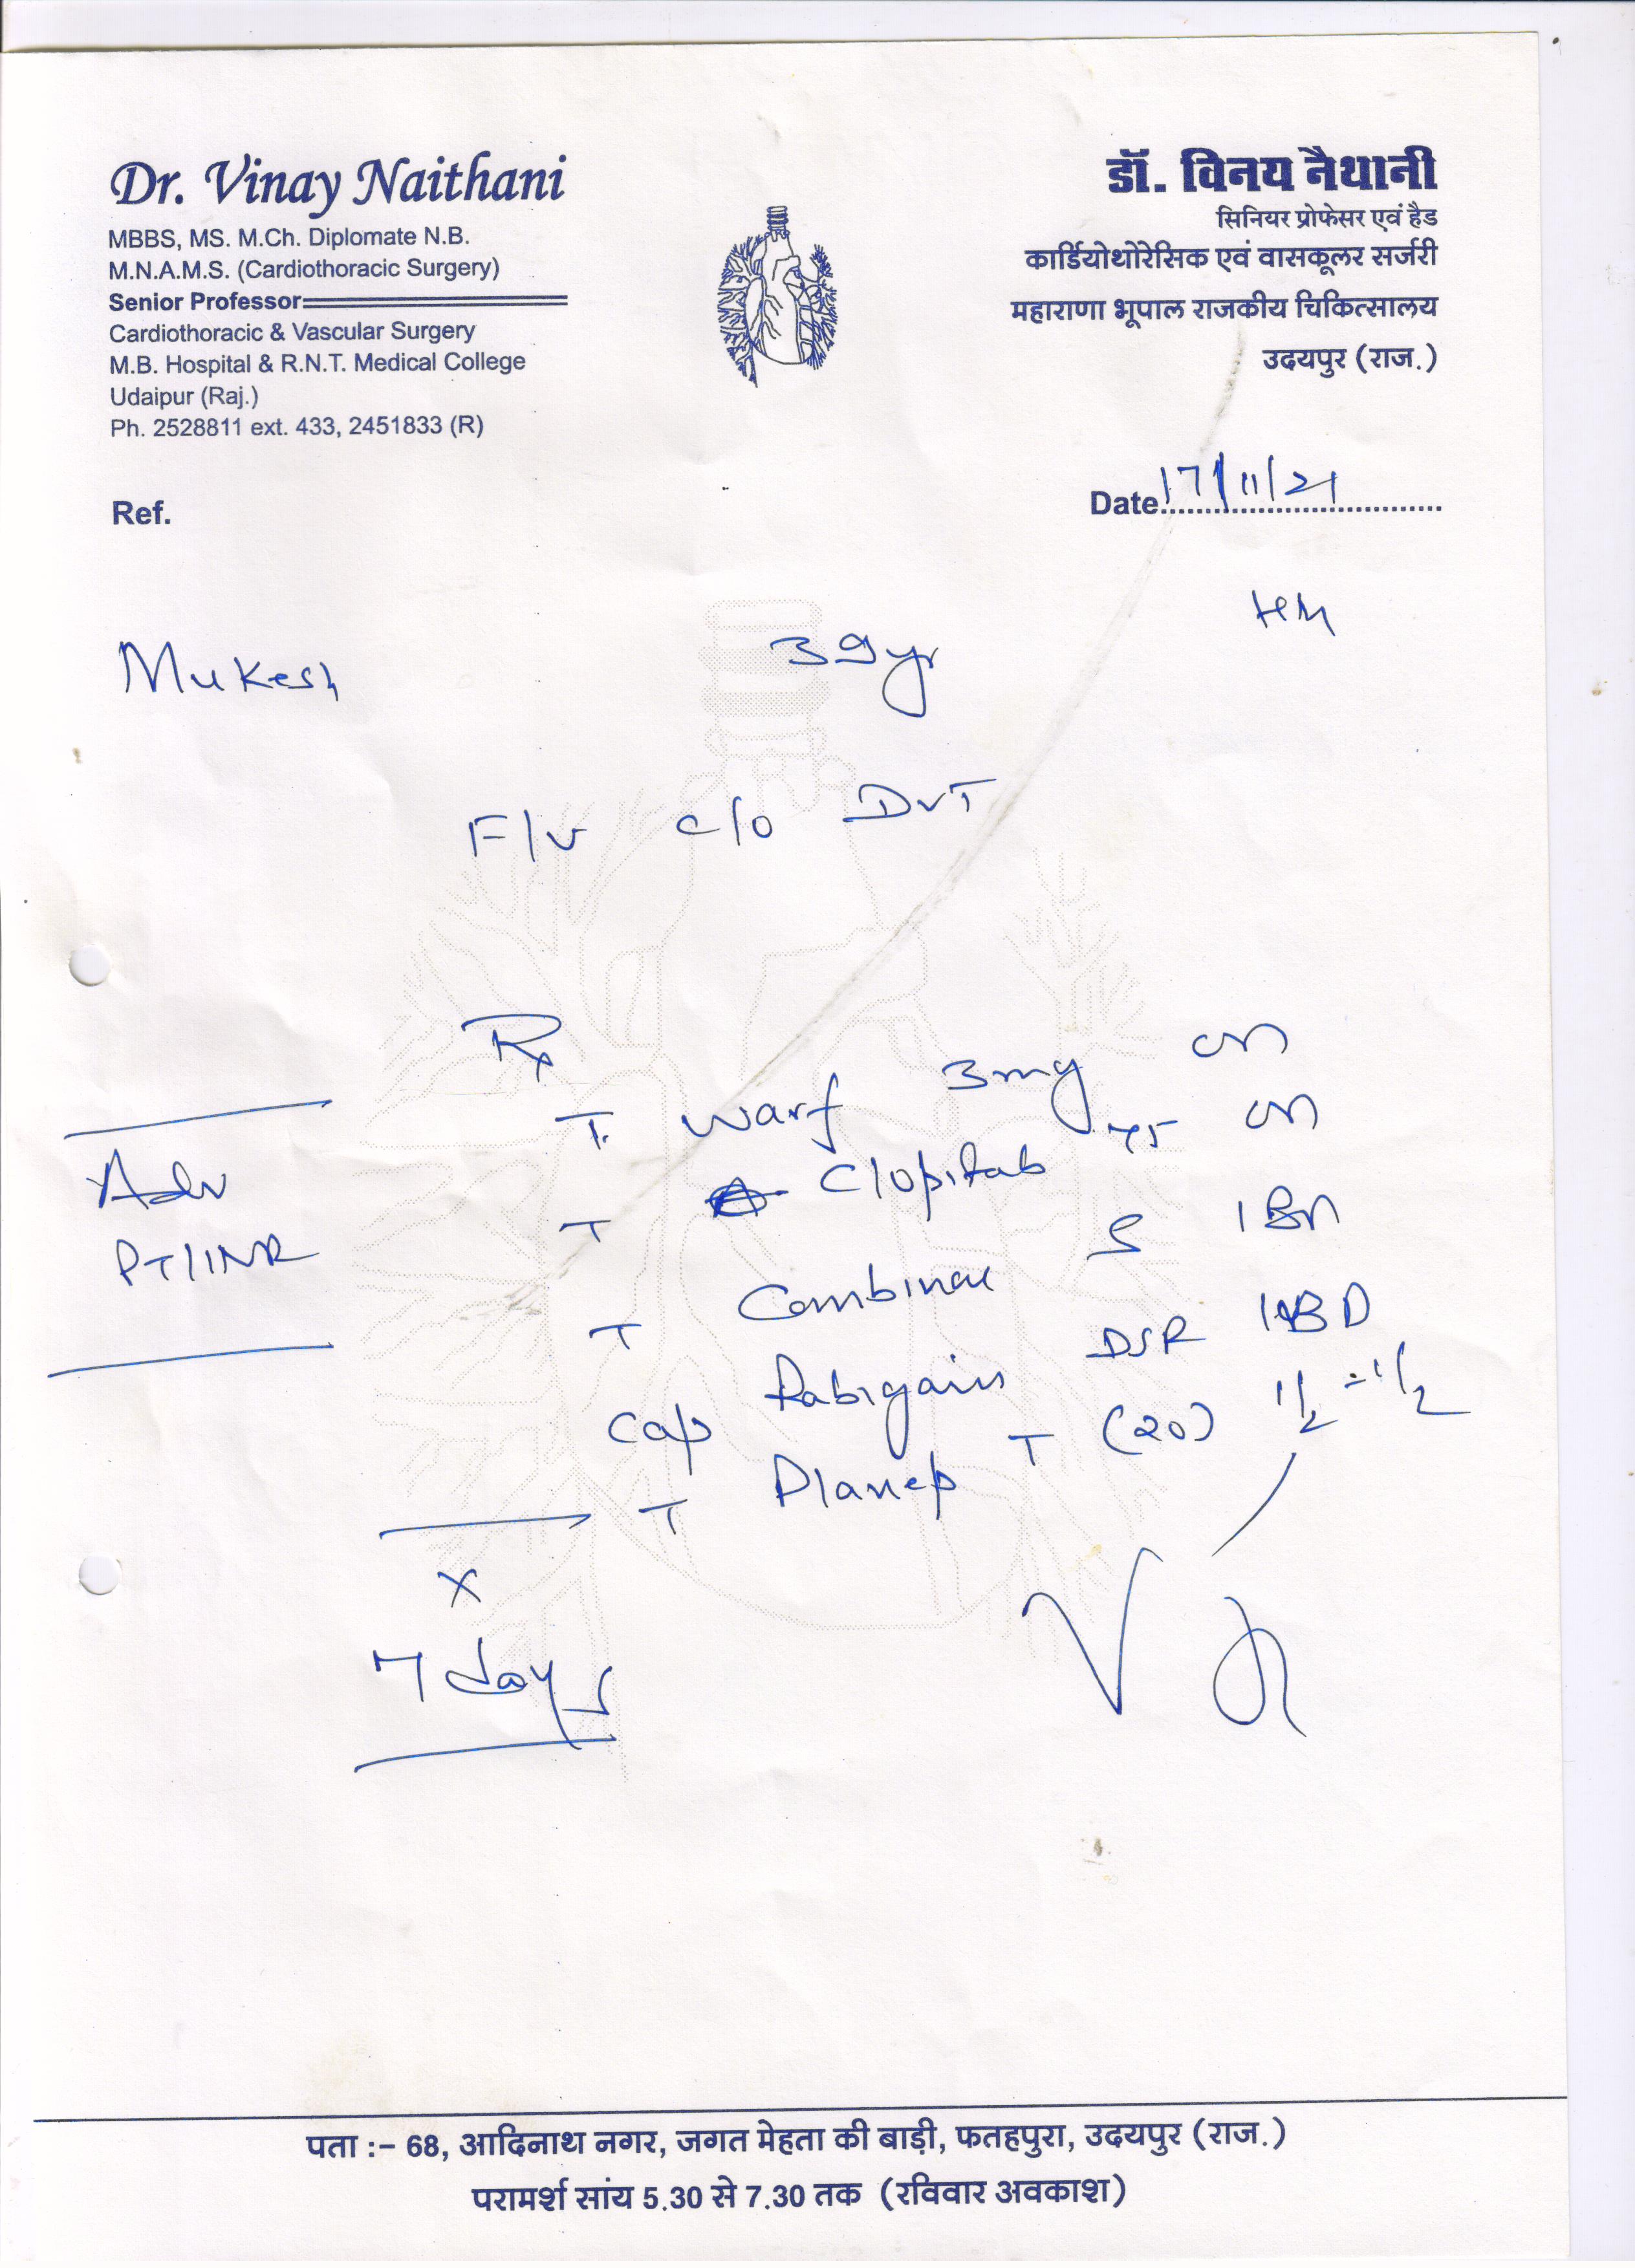 Dr. Vinay Naithani
MBBS, MS. M.Ch. Diplomate N.B.
M.N.A.M.S. (Cardiothoracic Surgery)
Senior Professor
Cardiothoracic & Vascular Surgery
M.B. Hospital & R.N.T. Medical College
Udaipur (Raj.)
Ph. 2528811 ext. 433, 2451833 (R)
डॉ. विनय नैथानी
सिनियर प्रोफेसर एवं हैड
कार्डियोथोरेसिक एवं वासकूलर सर्जरी
महाराणा भूपाल राजकीय चिकित्सालय
उदयपुर (राज.)
Ref.
Date 17/11/21
Mukesh 39yr
c/o DVT
Rx
T. Warf 3mg
T Clopitab 75
T
Cap DSR
T T (20) 1/2 - 1/2
Adv
PT/INR
x
7 days
पता :- 68, आदिनाथ नगर, जगत मेहता की बाड़ी, फतहपुरा, उदयपुर (राज.)
परामर्श सांय 5.30 से 7.30 तक (रविवार अवकाश)